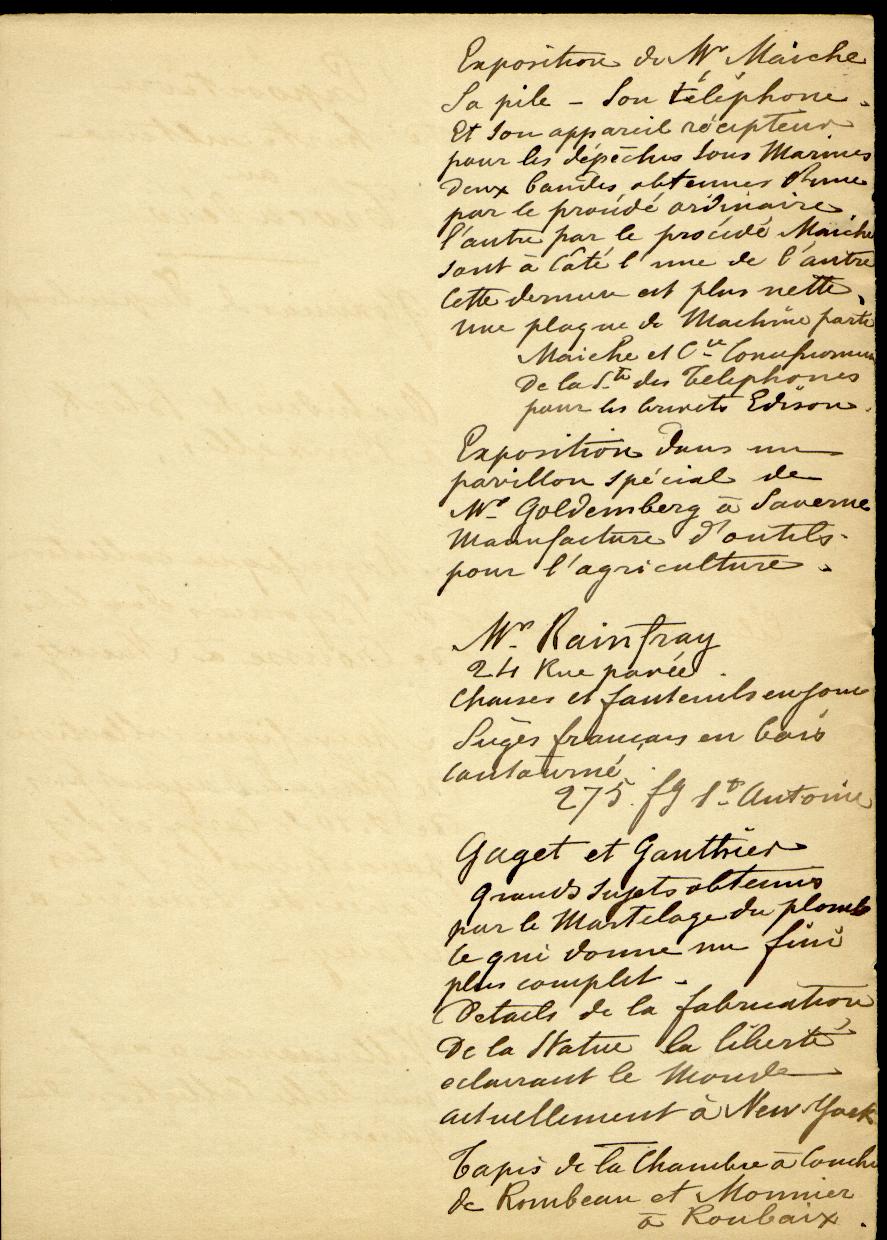 Exposition de Mr Maiche
Sa pile – Son téléphone.
Et son appareil récepteur
pour les dépêches Sous Marines
Deux bandes obtenues l'une
par le procédé ordinaire
l'autre par le procédé Maiche
sont à Côté l'une de l'autre
Cette dernière est plus nette.
une plaque de Machine porte
Maiche et Cie
De la Sté des Téléphones
pour les brevets Edison.
Exposition dans un
pavillon spécial de
Mr Goldemberg à Saverne
Manufacture d'outils
pour l'agriculture.
Mr Rainfray
24 Rue pavée.
Chaises et fauteuils en jonc
Sièges français en bois
Contourné.
275. fg St Antoine
Gaget et Gauthier
Grands sujets obtenus
par le Martelage du plomb
ce qui donne un fini
plus complet.
Détails de la fabrication
De la Statue la liberté
éclairant le Monde
actuellement à New York
Tapis de la Chambre à Couche
de Rombeau et Monnier
à Roubaix.